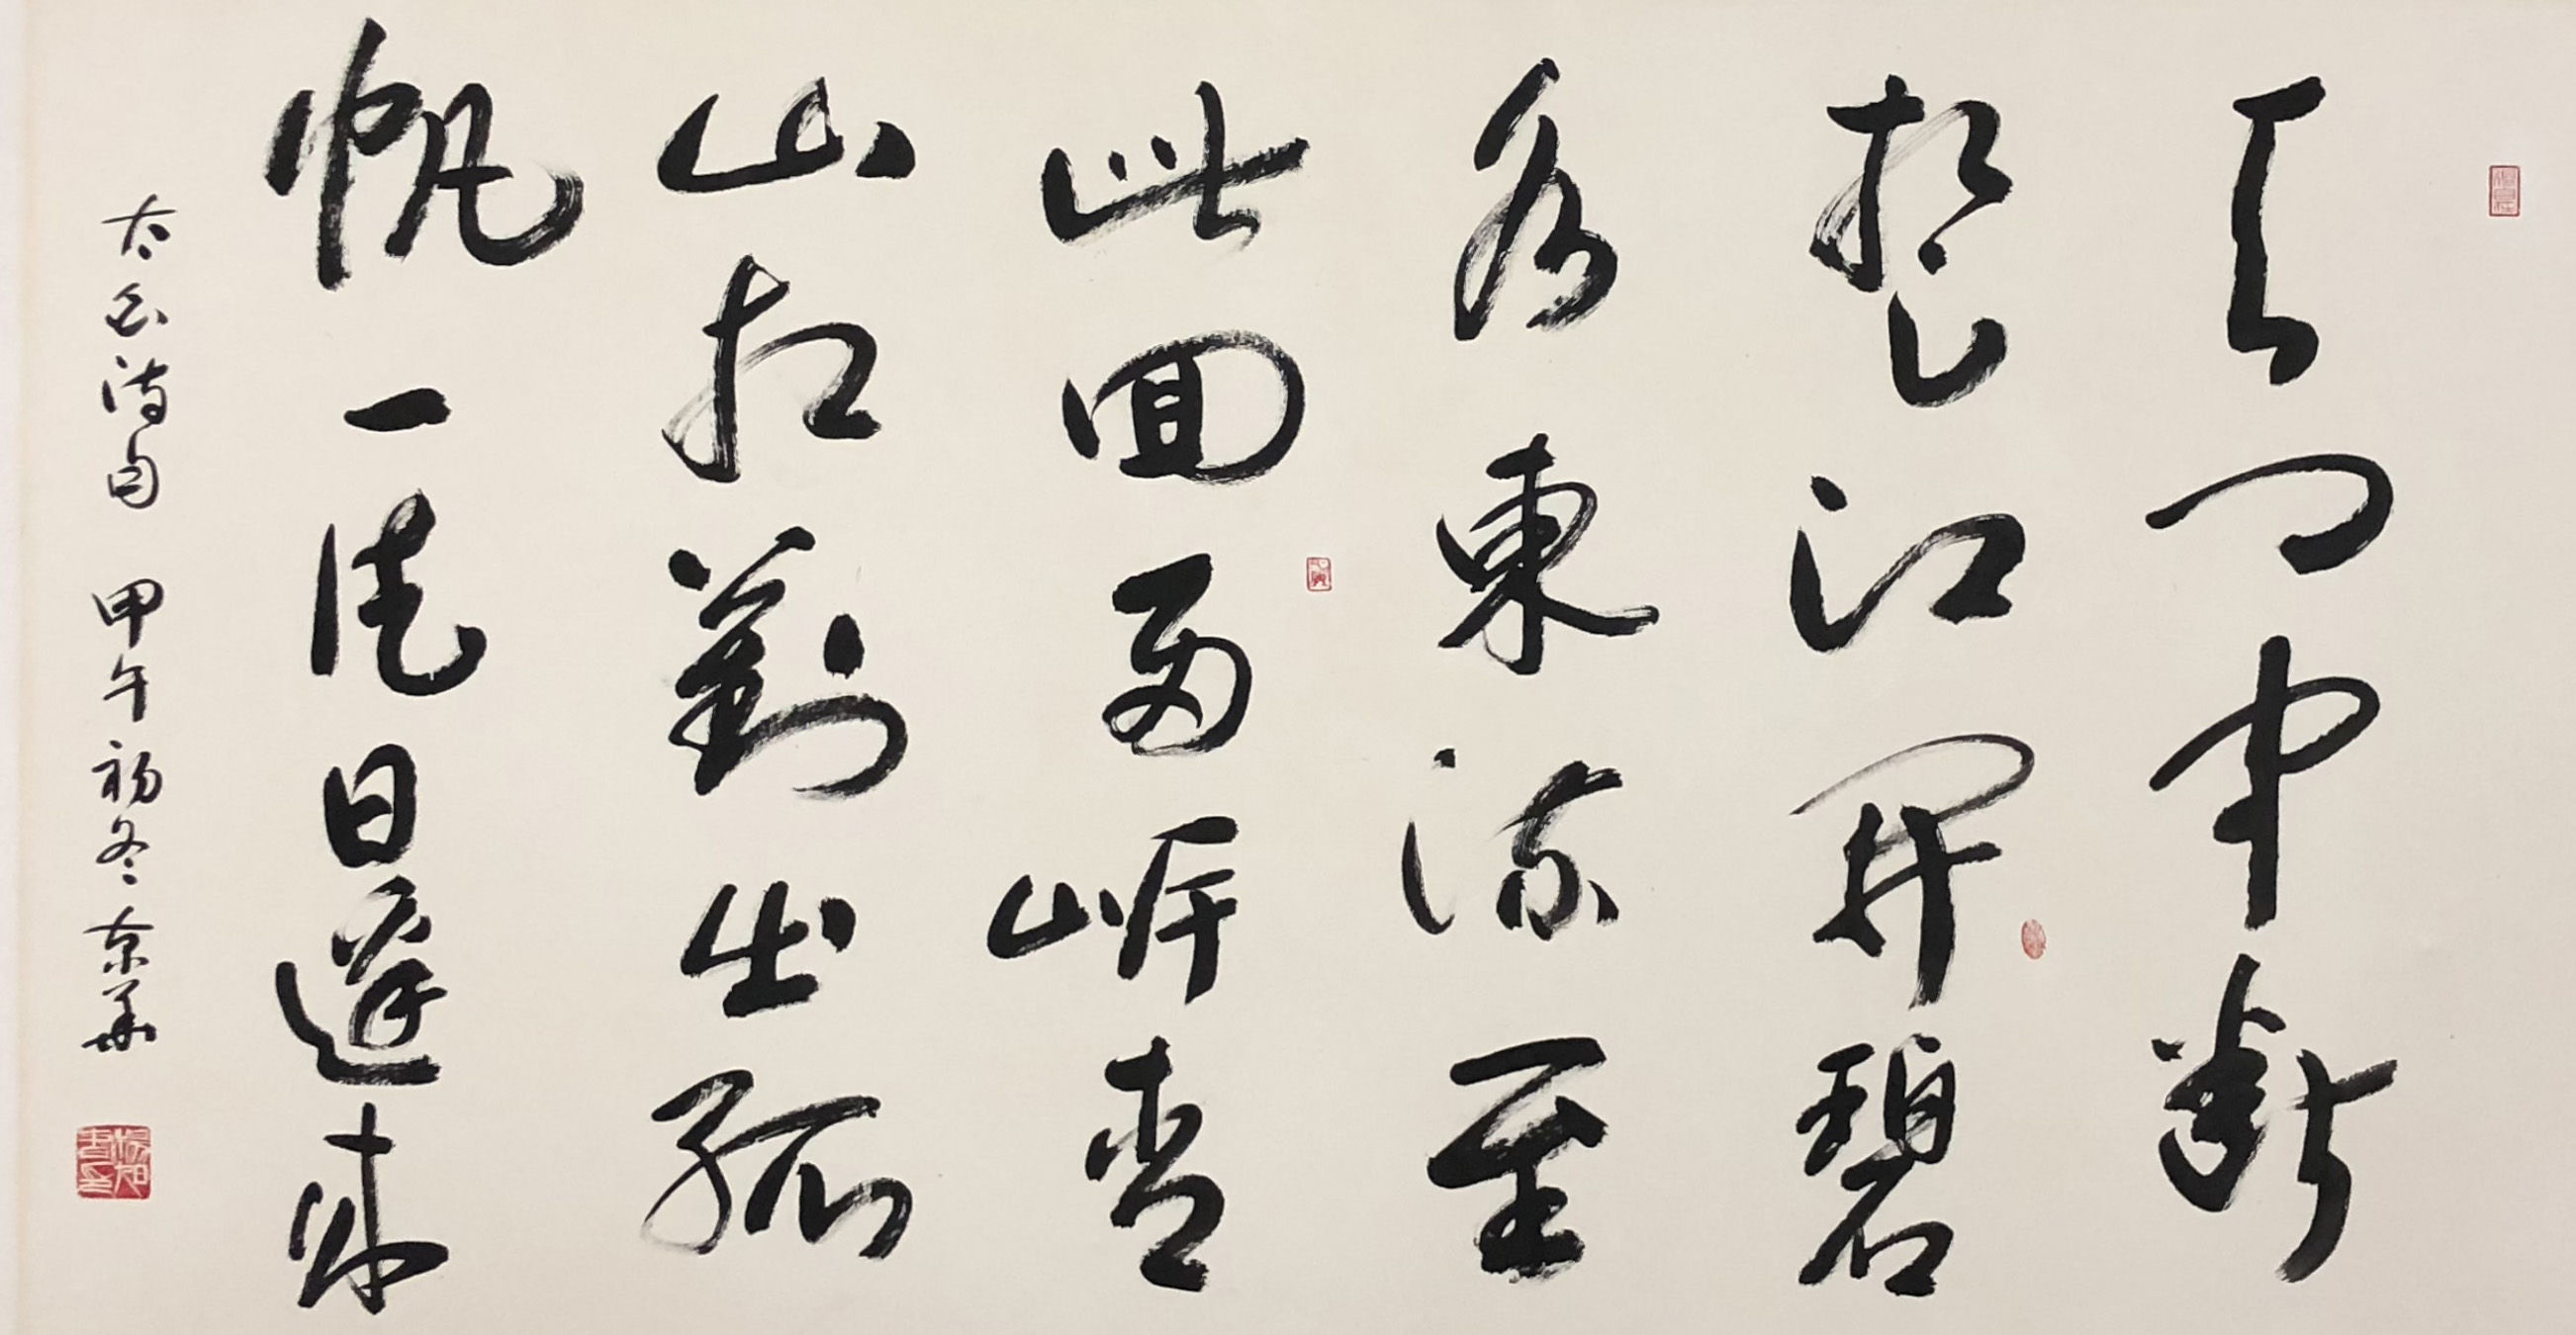 天門中斷
楚江開碧
水東流至
此回兩岸青
山相對出孤
帆一片日邊來
太白詩句 甲午初冬京華